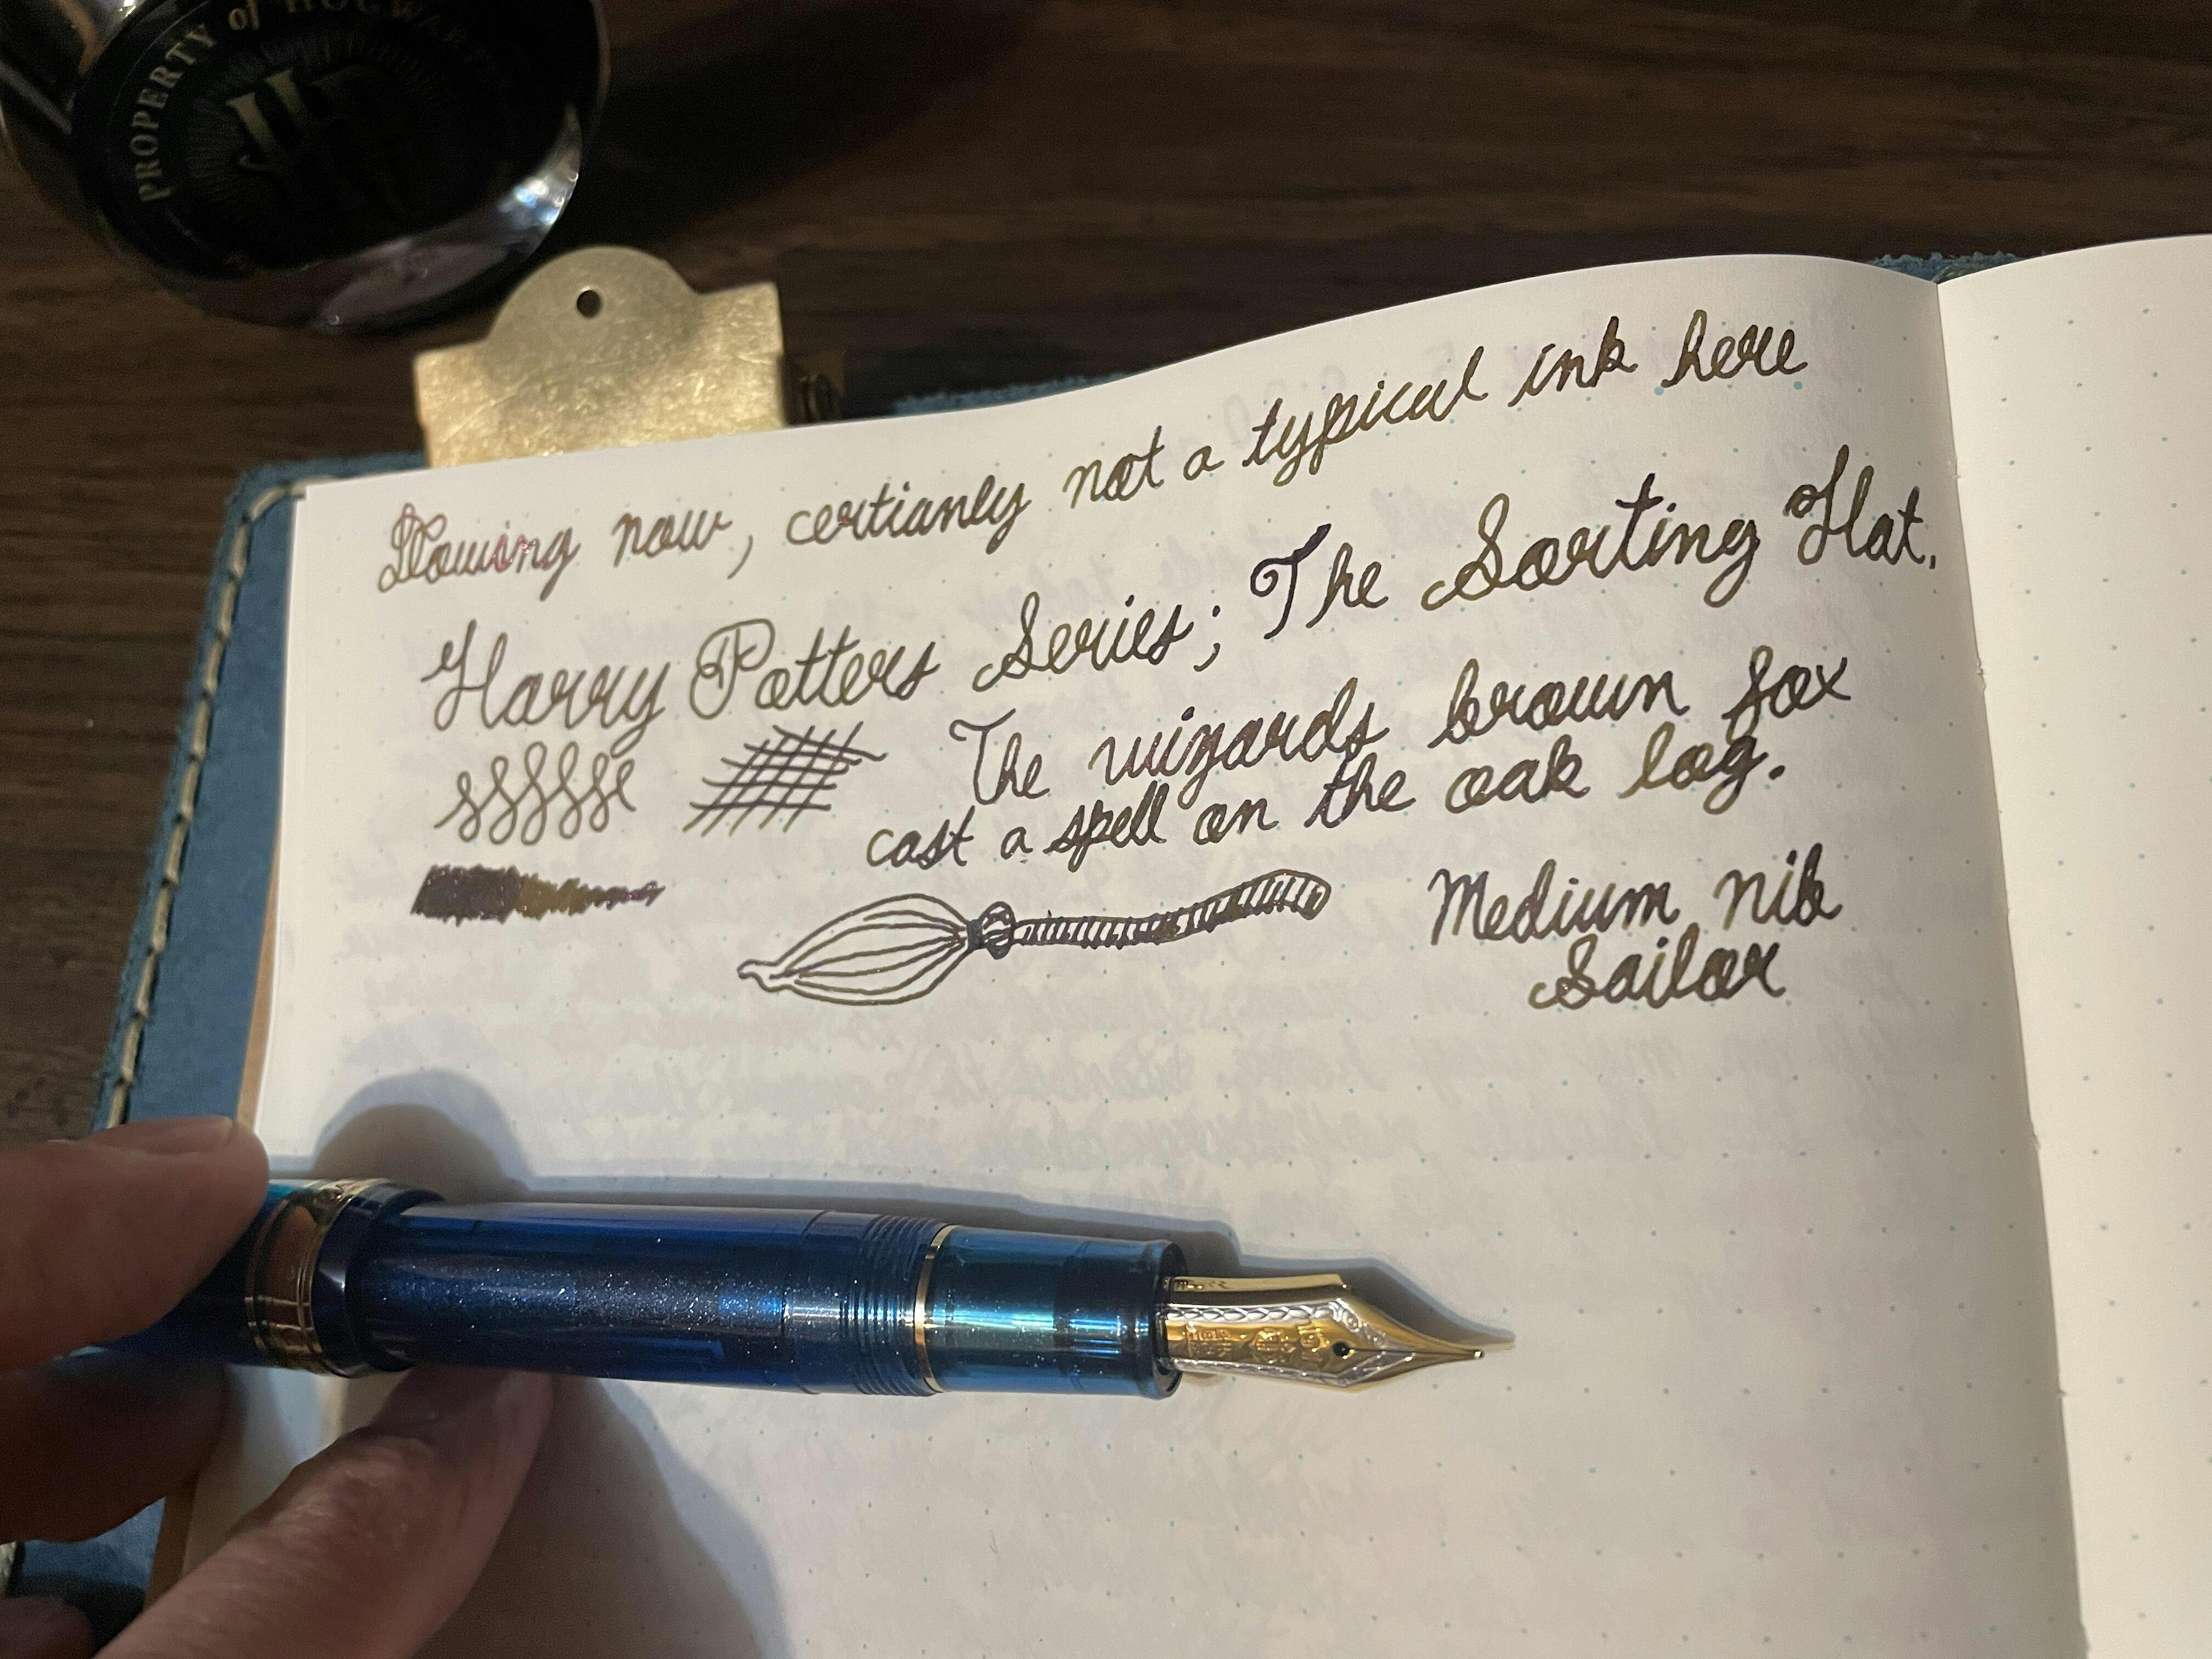 PROPERTY of HOGWARTS
H
Flowing now, certianly not a typical ink here
Harry Potters Series; The Sorting Hat.
The wizards brown fox
cast a spell on the oak log.
Medium nib
Sailor